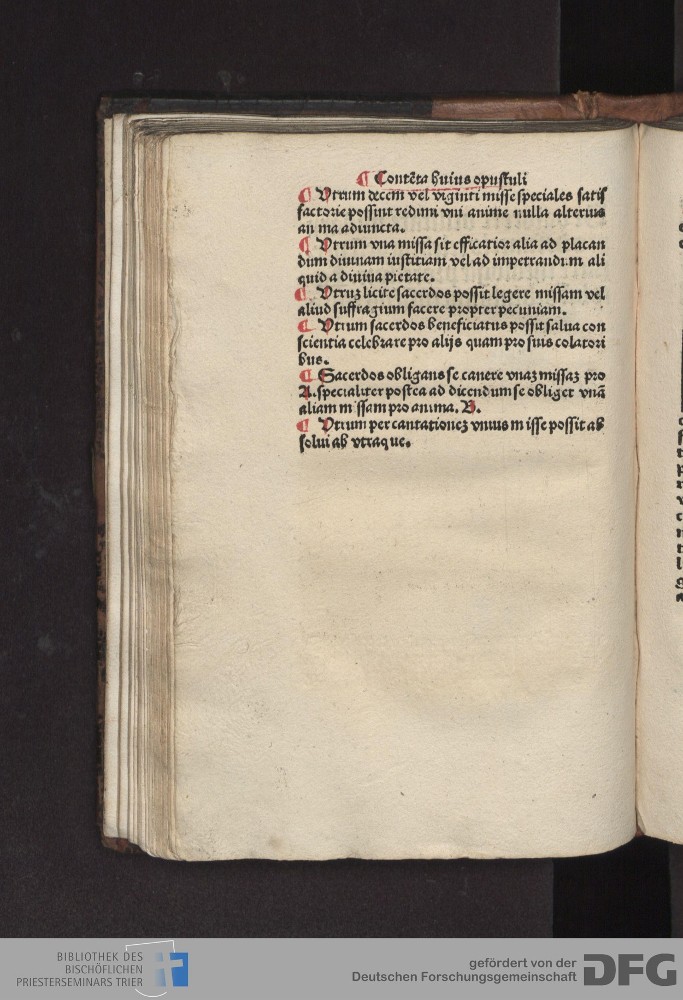 ¶ Contēta huius opusculi
¶ Vtrum decem vel viginti misse speciales satis
factorie possint redimi vni anime nulla alterius
an ma adiuncta.
¶ Vtrum vna missa sit efficatior alia ad placan
dum diuinam iustitiam vel ad impetrandum ali
quid a diuina pietate.
¶ Vtruꝫ licite sacerdos possit legere missam vel
aliud suffragium facere propter pecuniam.
¶ Vtrum sacerdos beneficiatus possit salua con
scientia celebrare pro alijs quam pro suis colatori
bus.
¶ Sacerdos obligans se canere vnaꝫ missaꝫ pro
A. specialiter postea ad dicendum se obliget vnā
aliam missam pro anima. B.
¶ Vtrum per cantationeꝫ vnius misse possit ab
solui ab vtraque.
BIBLIOTHEK DES
BISCHÖFLICHEN
PRIESTERSEMINARS TRIER
gefördert von der
Deutschen Forschungsgemeinschaft
DFG